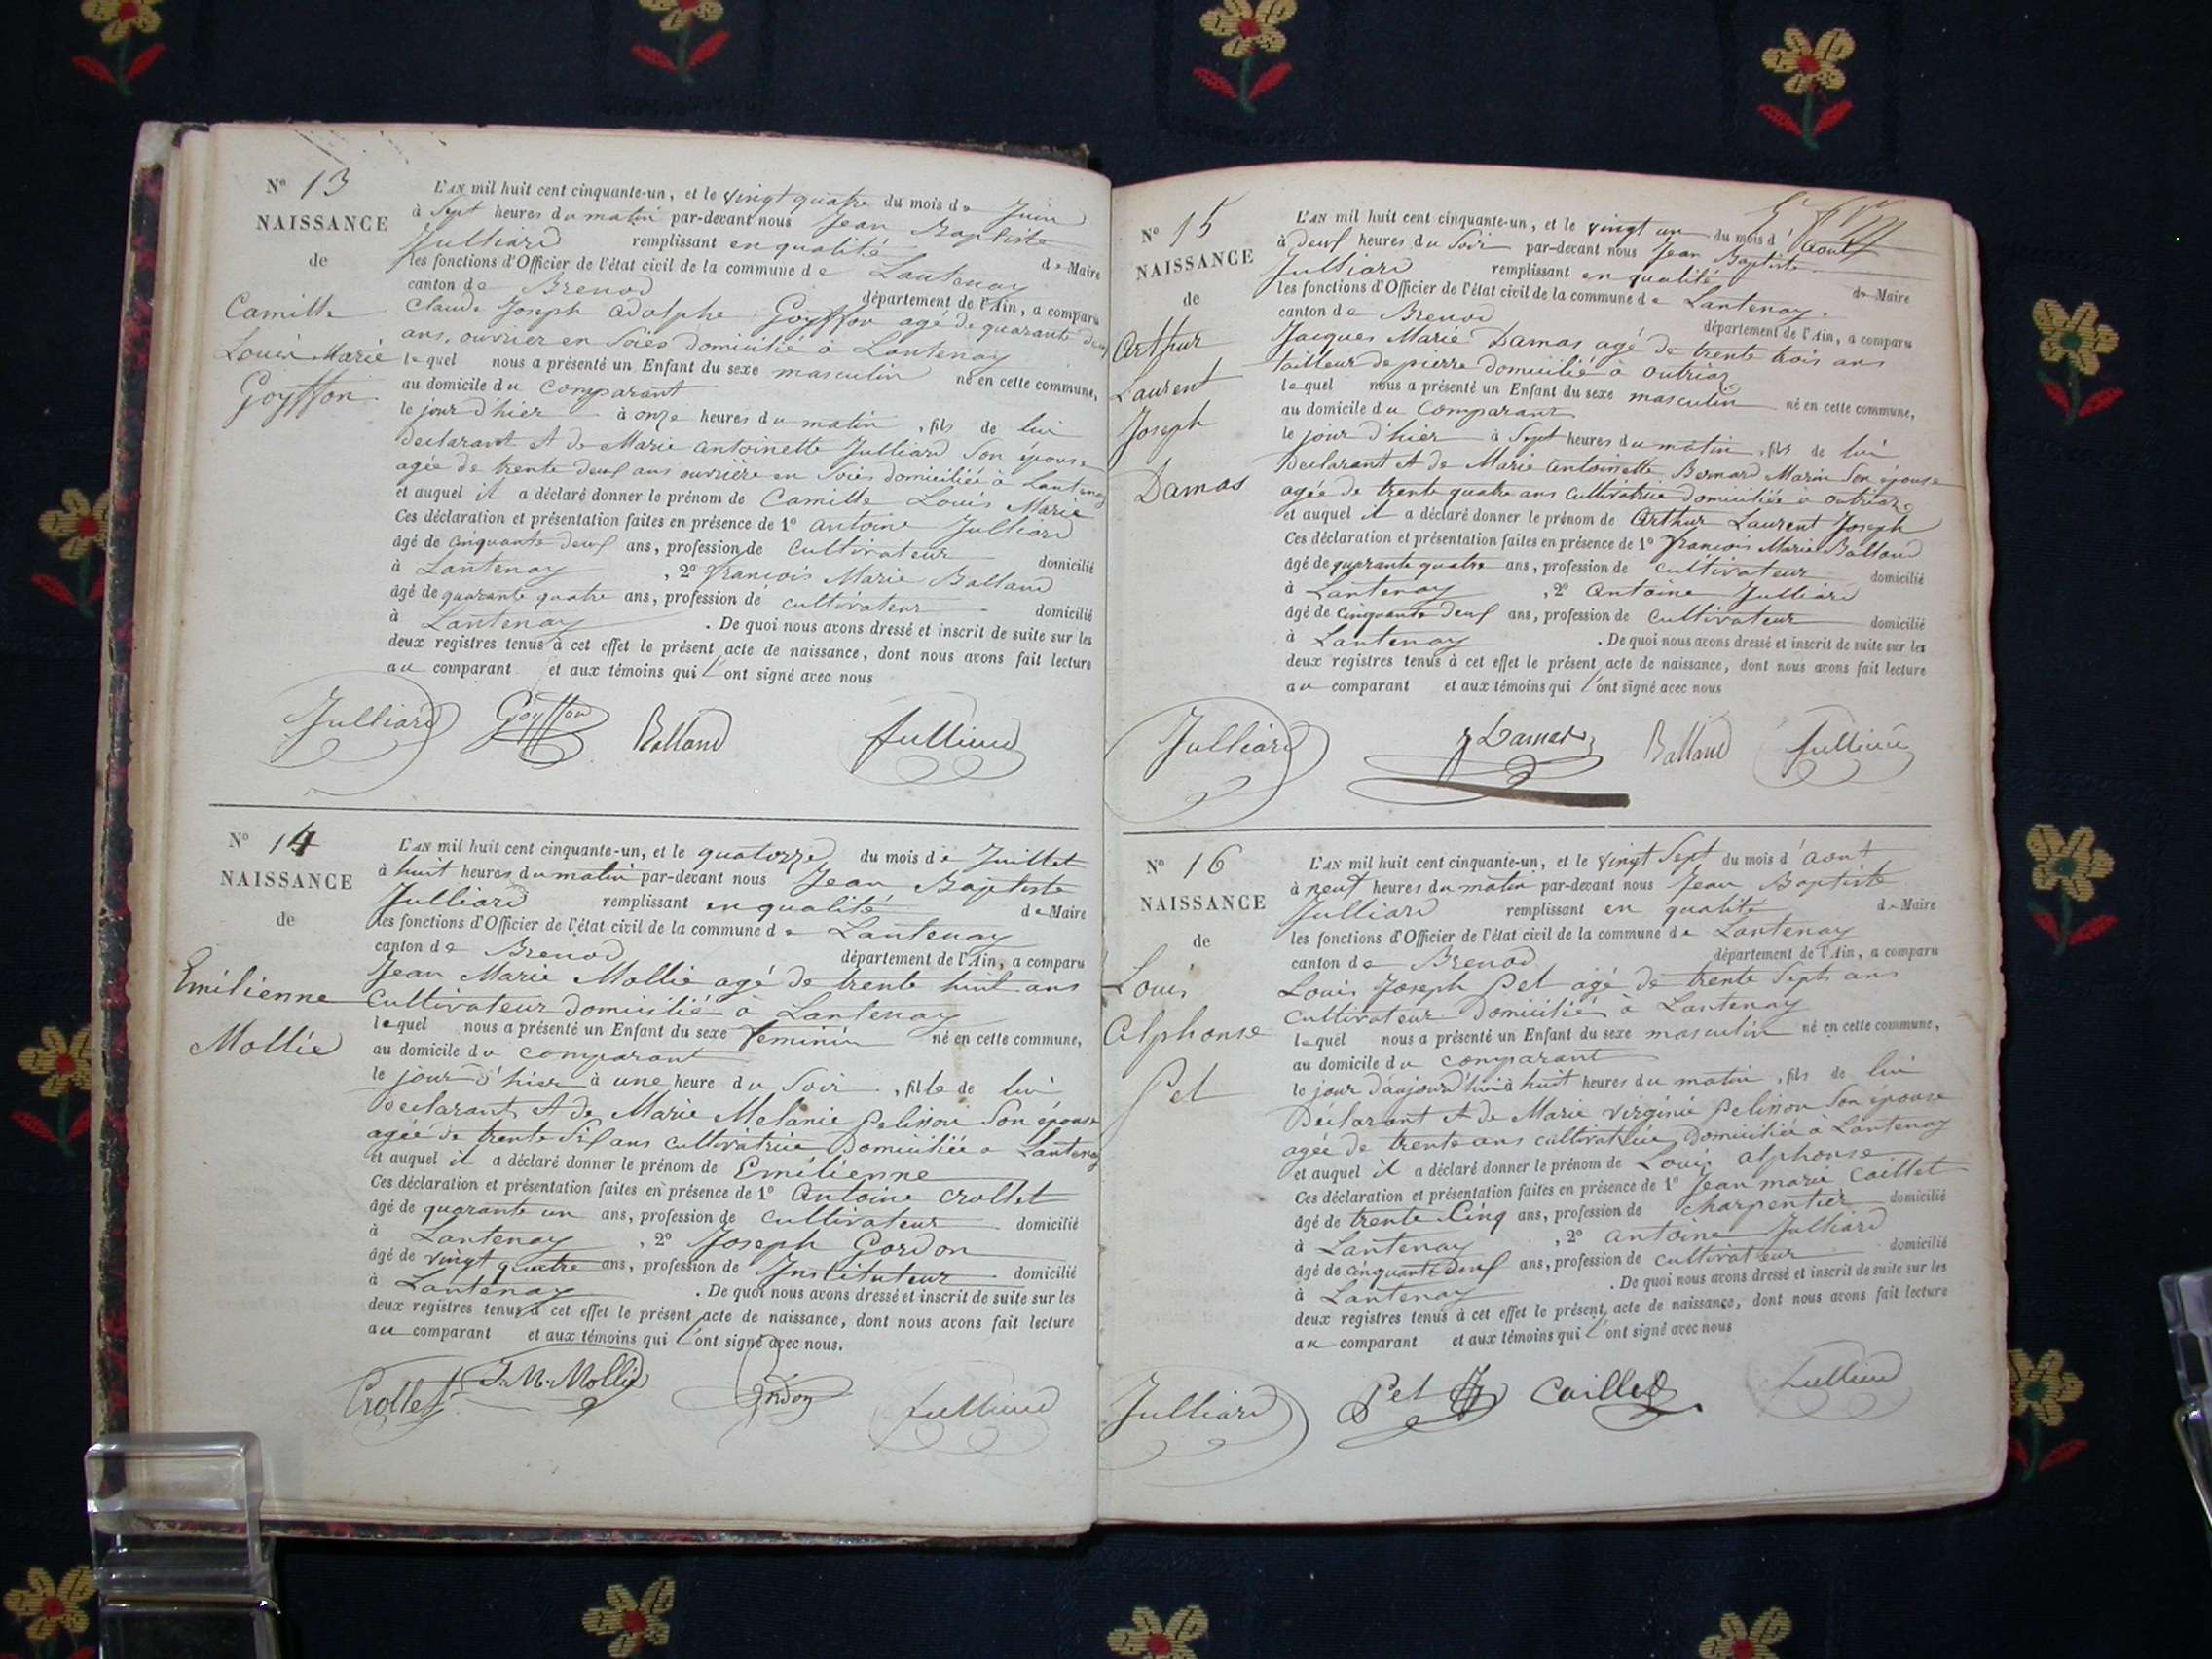 N° 13
NAISSANCE
de
Camille
Louis Marie
Goyffon
L'AN mil huit cent cinquante-un, et le vingt quatre du mois de Juin
à Sept heures du matin par-devant nous Jean Baptiste
Julliard remplissant en qualité de Maire
les fonctions d'Officier de l'état civil de la commune de Lantenay
canton de Brenod département de l'Ain, a comparu
Claude Joseph adolphe Goyffon agé de quarante deux
ans, ouvrier en Soies domicilié à Lantenay
lequel nous a présenté un Enfant du sexe masculin né en cette commune,
au domicile du comparant
le jour d'hier à onze heures du matin, fils de lui
Declarant et de Marie antoinette Julliard Son épouse
agée de trente deux ans ouvrière en Soies domiciliée à Lantenay
et auquel il a déclaré donner le prénom de Camille Louis Marie
Ces déclaration et présentation faites en présence de 1° antoine Julliard
âgé de cinquante deux ans, profession de cultivateur domicilié
à Lantenay, 2° François Marie Balland
âgé de quarante quatre ans, profession de cultivateur domicilié
à Lantenay. De quoi nous avons dressé et inscrit de suite sur les
deux registres tenus à cet effet le présent acte de naissance, dont nous avons fait lecture
au comparant et aux témoins qui l'ont signé avec nous
Julliard Goyffon Balland Julliard
N° 14
NAISSANCE
de
Emilienne
Mollie
L'AN mil huit cent cinquante-un, et le quatorze du mois de Juillet
à huit heures du matin par-devant nous Jean Baptiste
Julliard remplissant en qualité de Maire
les fonctions d'Officier de l'état civil de la commune de Lantenay
canton de Brenod département de l'Ain, a comparu
Jean Marie Mollie agé de trente huit ans
Cultivateur domicilié à Lantenay
lequel nous a présenté un Enfant du sexe féminin né en cette commune,
au domicile du comparant
le jour d'hier à une heure du Soir, fille de lui
Declarant et de Marie Melanie Pelisson Son épouse
agée de trente Six ans cultivatrice Domiciliée a Lantenay
et auquel il a déclaré donner le prénom de Emilienne
Ces déclaration et présentation faites en présence de 1° Antoine Crollet
âgé de quarante un ans, profession de cultivateur domicilié
à Lantenay, 2° Joseph Gordon
âgé de vingt quatre ans, profession de Instituteur domicilié
à Lantenay. De quoi nous avons dressé et inscrit de suite sur les
deux registres tenus à cet effet le présent acte de naissance, dont nous avons fait lecture
au comparant et aux témoins qui l'ont signé avec nous.
Crollet J. M. Mollie Gordon Julliard
N° 15
NAISSANCE
de
Arthur
Laurent
Joseph
Damas
L'AN mil huit cent cinquante-un, et le vingt un du mois d'aout
à deux heures du Soir par-devant nous Jean Baptiste
Julliard remplissant en qualité de Maire
les fonctions d'Officier de l'état civil de la commune de Lantenay.
canton de Brenod département de l'Ain, a comparu
Jacques Marie Damas agé de trente trois ans
tailleur de pierre domicilié à outriaz
lequel nous a présenté un Enfant du sexe masculin né en cette commune,
au domicile du Comparant
le jour d'hier à Sept heures du matin, fils de lui
Declarant et de Marie antoinette Bernard Marin Son épouse
agée de trente quatre ans Cultivatrice domiciliée a outriaz
et auquel il a déclaré donner le prénom de Arthur Laurent Joseph
Ces déclaration et présentation faites en présence de 1° François Marie Balland
âgé de quarante quatre ans, profession de cultivateur domicilié
à Lantenay, 2° antoine Julliard
âgé de cinquante deux ans, profession de Cultivateur domicilié
à Lantenay. De quoi nous avons dressé et inscrit de suite sur les
deux registres tenus à cet effet le présent acte de naissance, dont nous avons fait lecture
au comparant et aux témoins qui l'ont signé avec nous
Julliard Damas Balland Julliard
N° 16
NAISSANCE
de
Louis
alphonse
Pet
L'AN mil huit cent cinquante-un, et le vingt Sept du mois d'aout
à neuf heures du matin par-devant nous Jean Baptiste
Julliard remplissant en qualité de Maire
les fonctions d'Officier de l'état civil de la commune de Lantenay
canton de Brenod département de l'Ain, a comparu
Louis Joseph Pet agé de trente Sept ans
Cultivateur Domicilié à Lantenay
lequel nous a présenté un Enfant du sexe masculin né en cette commune,
au domicile du comparant
le jour d'aujourd'hui à huit heures du matin, fils de lui
Déclarant et de Marie virginie Pelisson Son épouse
agée de trente ans cultivatrice Domiciliée à Lantenay
et auquel il a déclaré donner le prénom de Louis alphonse
Ces déclaration et présentation faites en présence de 1° Jean marie Caillet
âgé de trente Cinq ans, profession de charpentier domicilié
à Lantenay, 2° antoine Julliard
âgé de cinquante deux ans, profession de cultivateur domicilié
à Lantenay. De quoi nous avons dressé et inscrit de suite sur les
deux registres tenus à cet effet le présent acte de naissance, dont nous avons fait lecture
au comparant et aux témoins qui l'ont signé avec nous
Julliard Pet Caillet Julliard